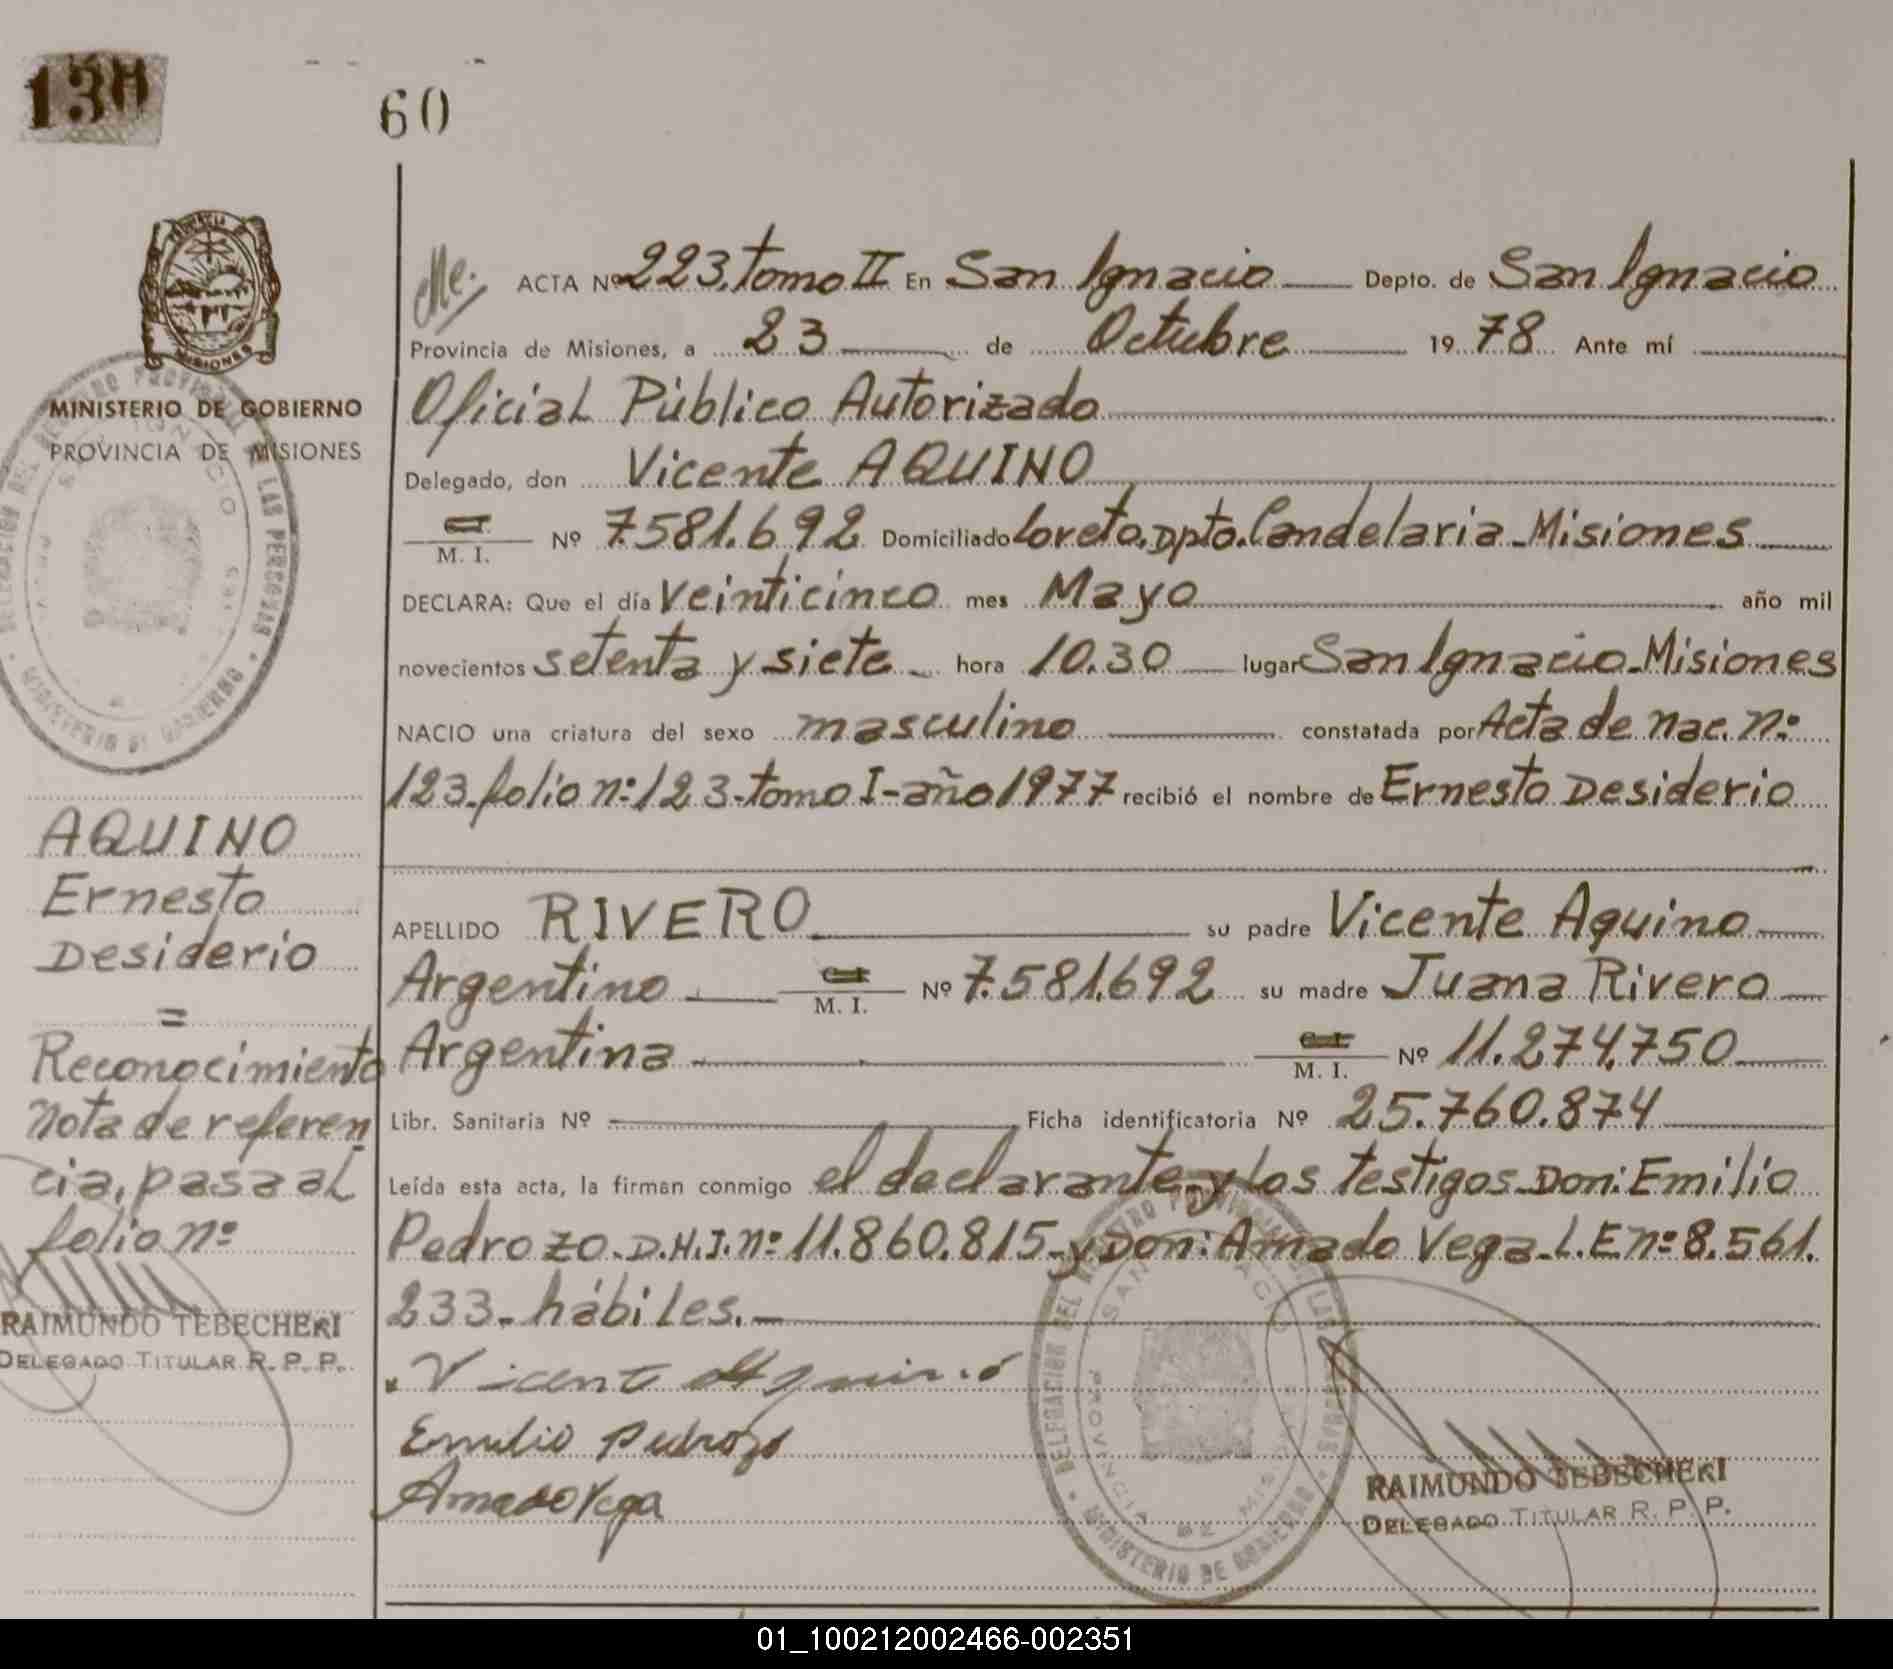 130
60
ACTA Nº 223. tomo II En San Ignacio Depto. de San Ignacio
Provincia de Misiones, a 23 de Octubre 1978 Ante mí
Oficial Público Autorizado
Delegado, don Vicente AQUINO
M. I. Nº 7.581.692 Domiciliado Loreto. Dpto. Candelaria - Misiones
DECLARA: Que el día Veinticinco mes Mayo año mil
novecientos setenta y siete hora 10.30 lugar San Ignacio - Misiones
NACIO una criatura del sexo masculino constatada por Acta de Nac. Nº
123 - folio nº 123 - tomo I - año 1977 recibió el nombre de Ernesto Desiderio
APELLIDO RIVERO su padre Vicente Aquino
Argentino M. I. Nº 7.581.692 su madre Juana Rivero
Argentina M. I. Nº 11.274.750
Libr. Sanitaria Nº Ficha identificatoria Nº 25.760.874
Leída esta acta, la firman conmigo el declarante - y los testigos - Don: Emilio
Pedrozo - D.N.I. nº 11.860.815 - y Don: Amado Vega - L.E nº 8.561.
233 - hábiles. -
Vicente Aquino
Emilio Pedrozo
Amado Vega
RAIMUNDO TEBECHERI
DELEGADO TITULAR R. P. P.
DELEGACION DEL REGISTRO PROVINCIAL DE LAS PERSONAS
SAN IGNACIO
PROVINCIA DE MISIONES
MINISTERIO DE GOBIERNO
PROVINCIA DE MISIONES
MINISTERIO DE GOBIERNO
PROVINCIA DE MISIONES
DELEGACION DEL REGISTRO PROVINCIAL DE LAS PERSONAS
SAN IGNACIO
MINISTERIO DE GOBIERNO
AQUINO
Ernesto
Desiderio
=
Reconocimiento
Nota de referen
cia, pasa al
folio nº
RAIMUNDO TEBECHERI
DELEGADO TITULAR R. P. P.
01_100212002466-002351